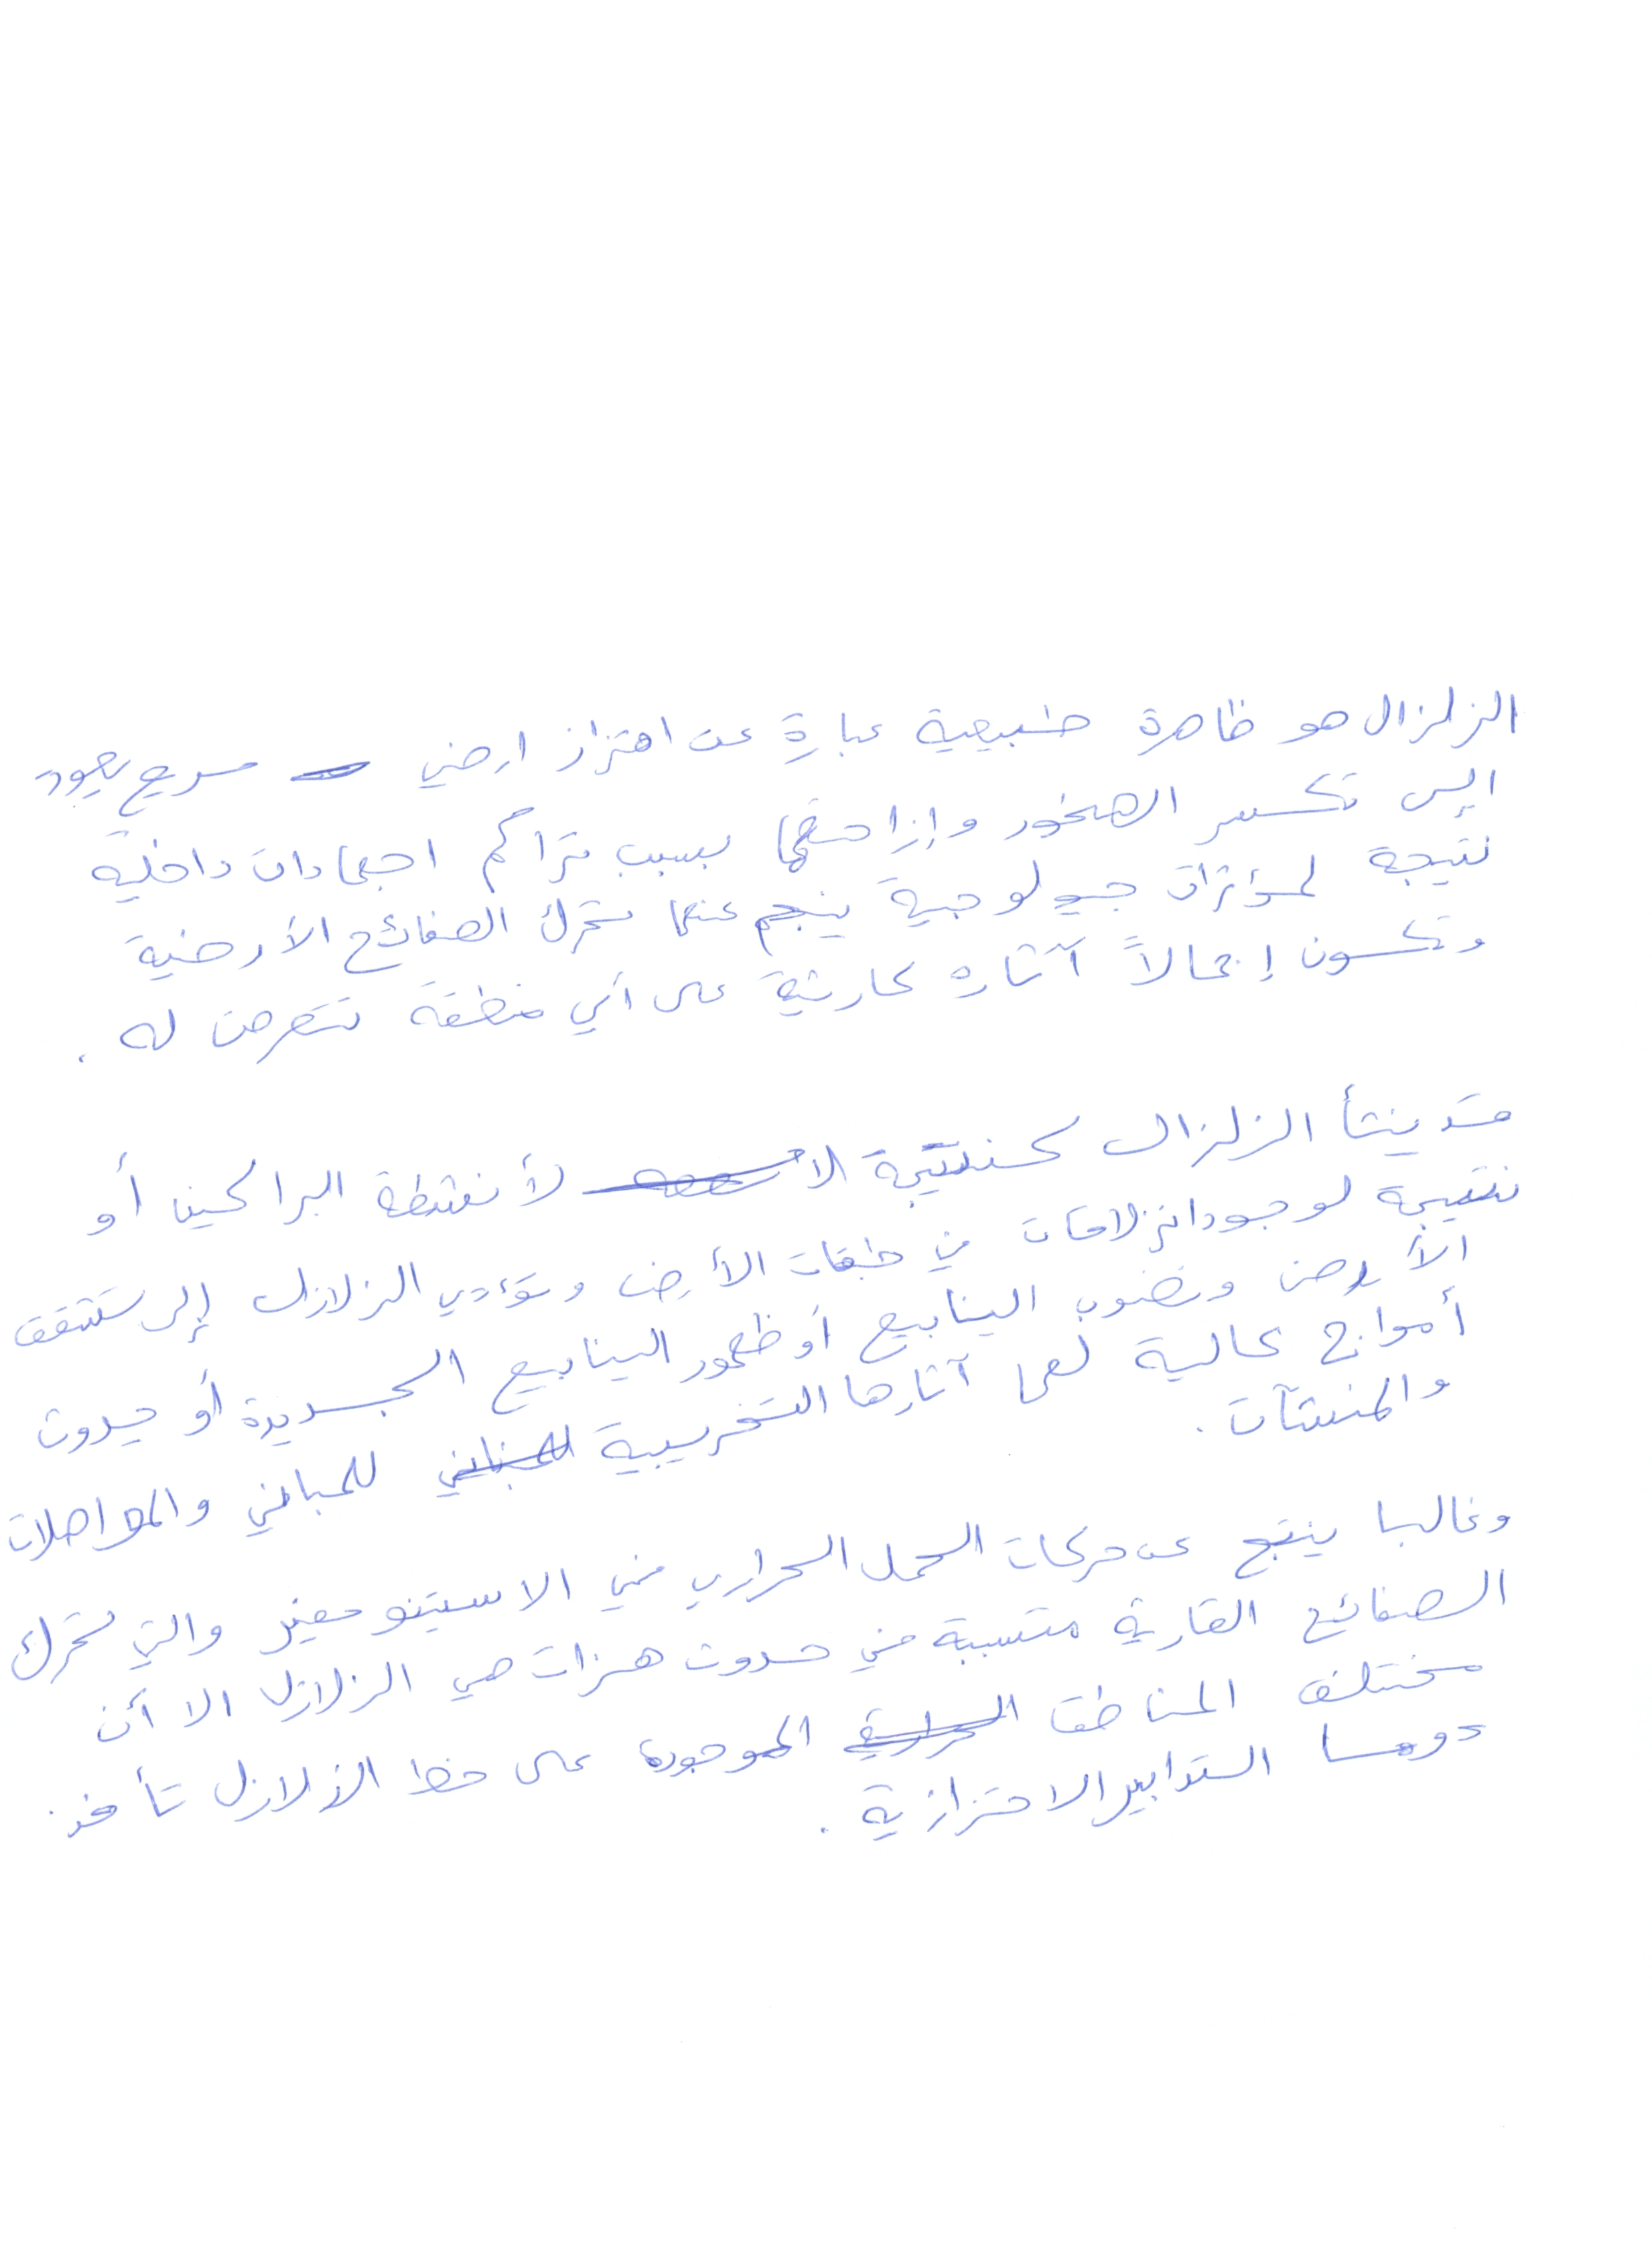 الزلزال هو ظاهرة طبيعية عبارة عن اهتزاز ارضي سريع يعود
إلى تكسر الصخور وإزاحتها بسبب تراكم اجهادات داخلية
نتيجة لمؤثرات جيولوجية ينجم عنها تحرك الصفائح الأرضية
وتكون إجمالاً آثاره كارثية على أي منطقة تتعرض له .
قد ينشأ الزلزال كنتيجة لأنشطة البراكين أو
نتيجة لوجود انزلاقات في طبقات الأرض وتؤدي الزلازل إلى تشقق
الأرض ونضوب الينابيع أو ظهور الينابيع الجديدة أو حدوث
أمواج عالية لها آثارها التخريبية للمباني والمواصلات
والمنشآت .
وغالبا ينتج عن حركات الحمل الحراري في الاستينوسفير والتي تحرك
الصفائح القارية متسببة في حدوث هزات هي الزلازل الا أن
مختلف المناطق الموجودة على خط الزلازل تأخذ
دوما التدابير الاحترازية .